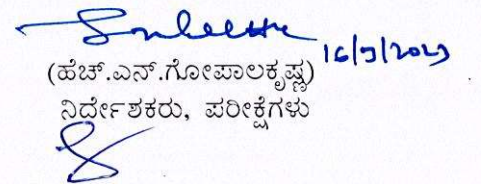 16/9/2023
(ಹೆಚ್.ಎನ್.ಗೋಪಾಲಕೃಷ್ಣ)
ನಿರ್ದೇಶಕರು, ಪರೀಕ್ಷೆಗಳು